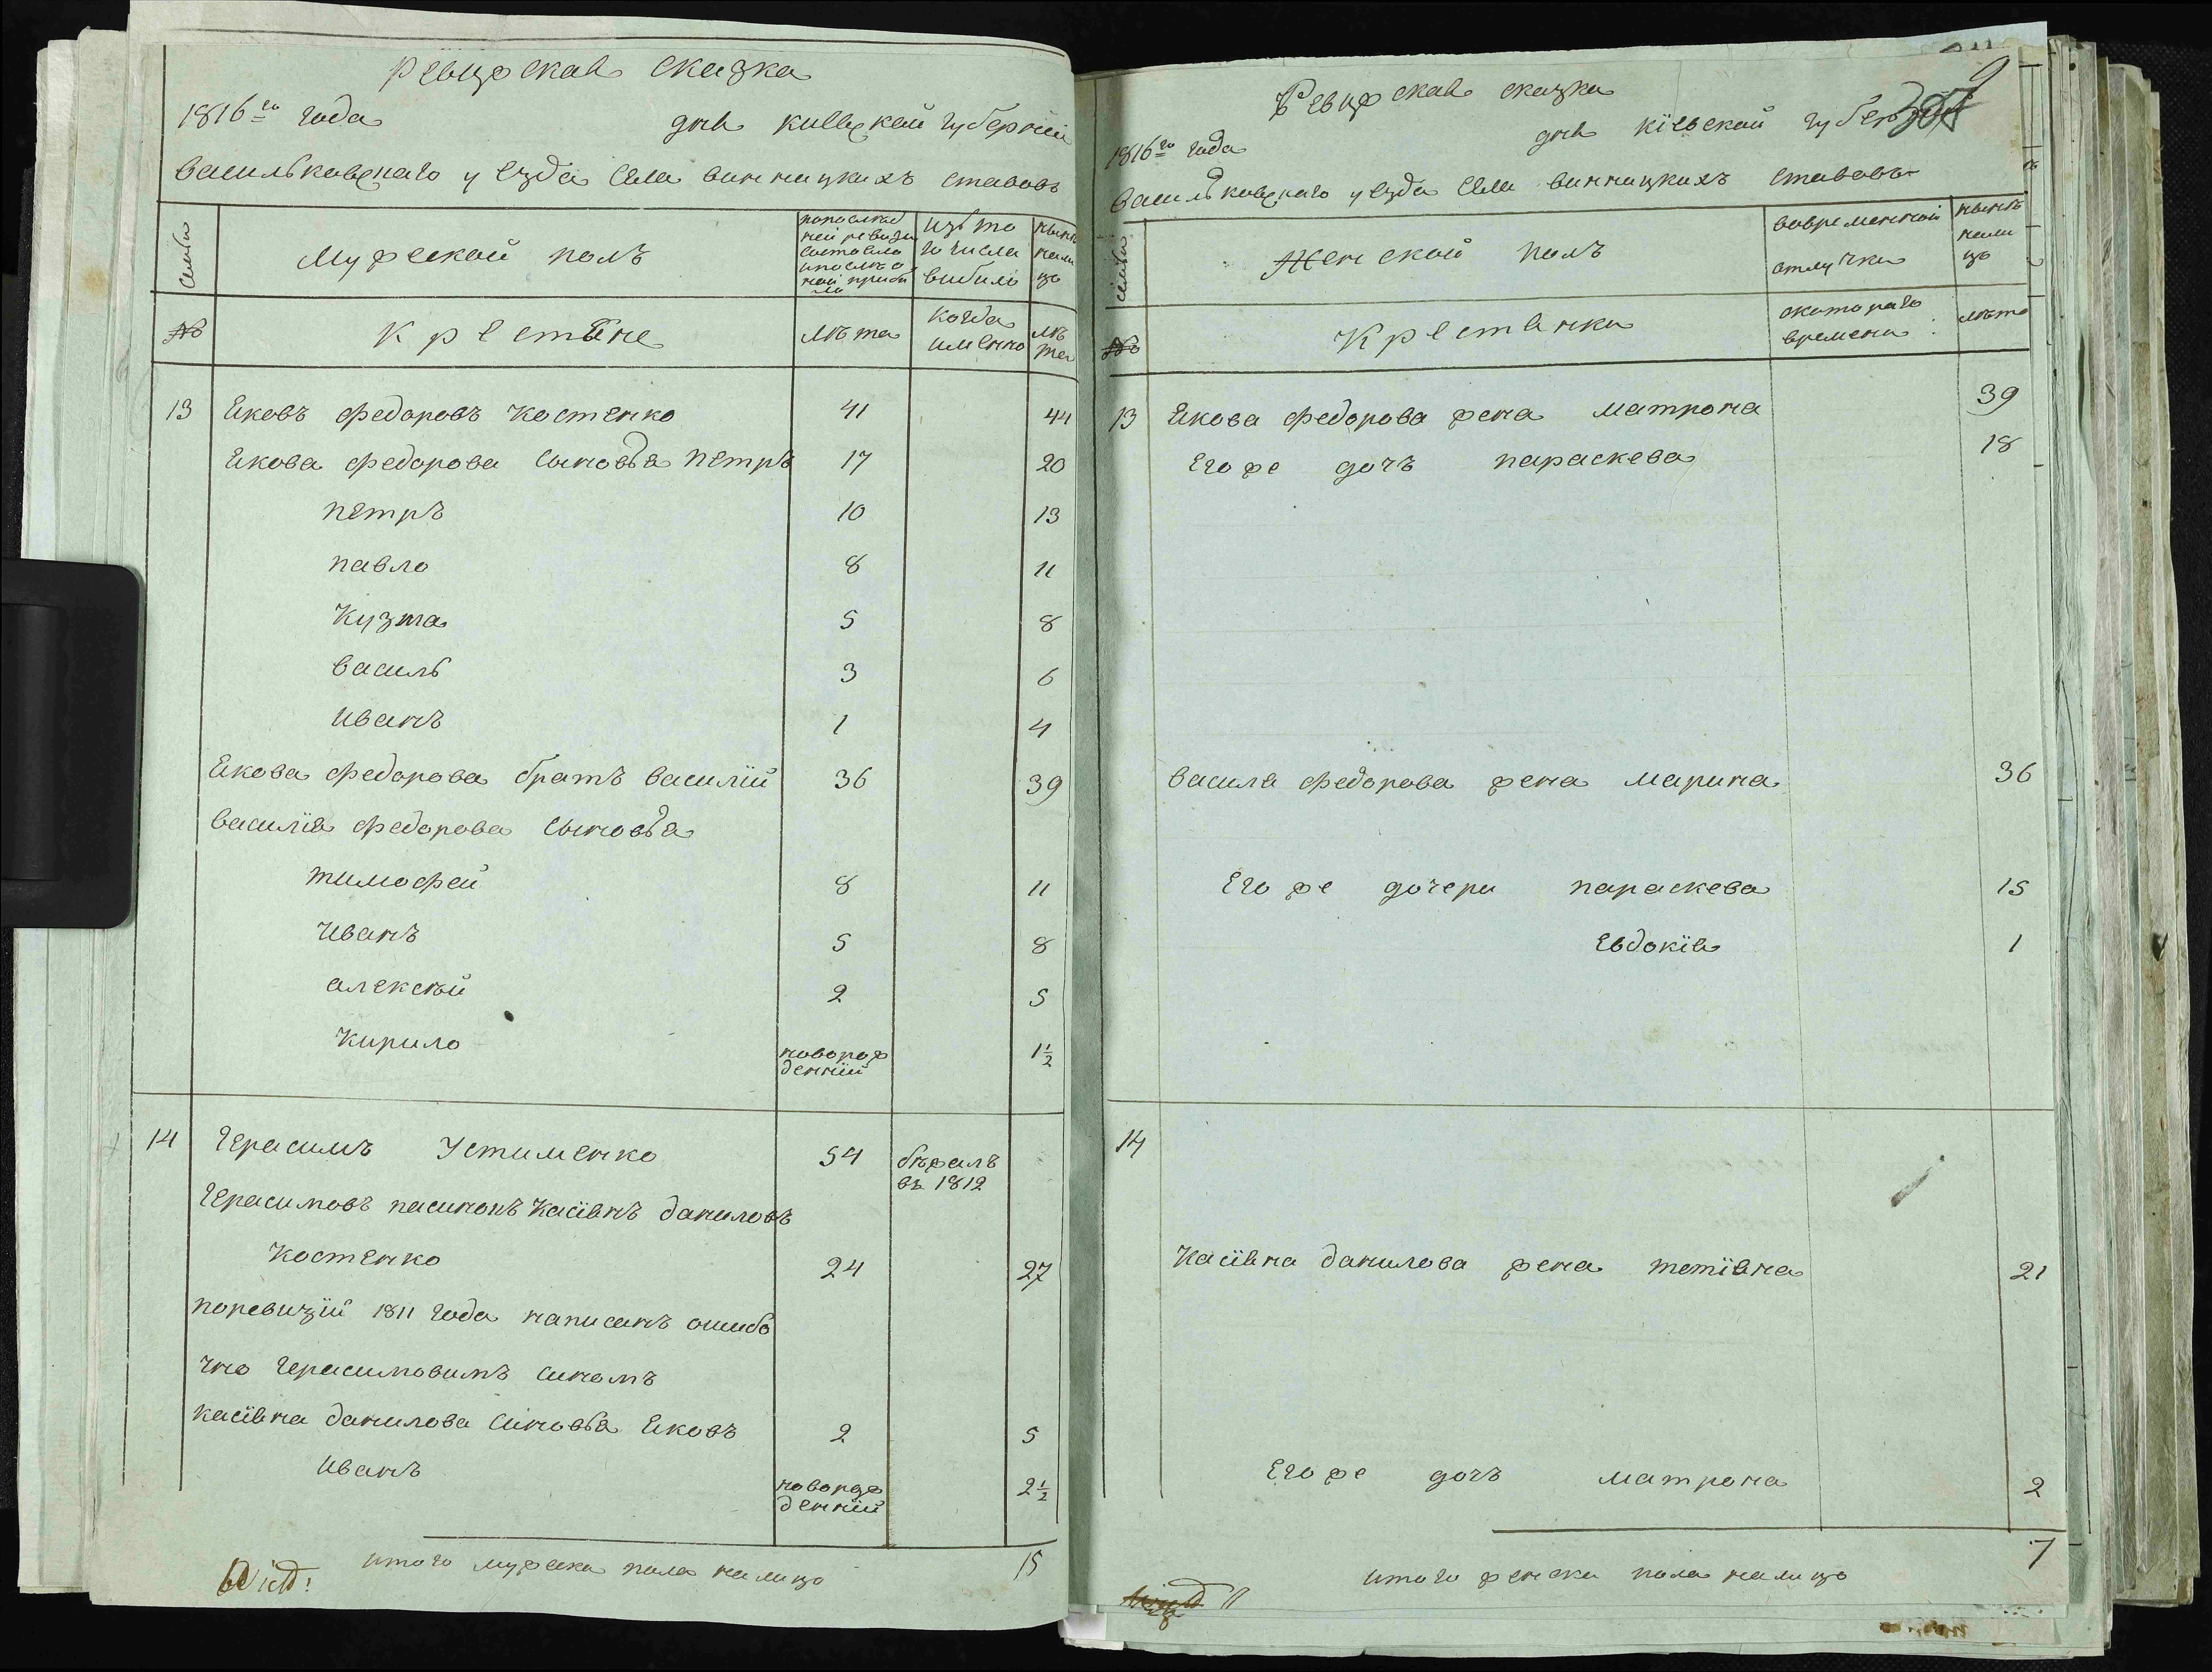 Ревизская сказка
1816го года дня киевской губернии
васильковского уезда села винницкихъ ставовъ
семьи
Мужеской полъ
попослед
ней ревизи
состояло
и после о
ной прибы
ло
изъ то
го числа
выбыло
ныне
нали
цо
№
Крестяне
лѣта
когда
именно
лѣ
та
13 Яковъ федоровъ Костенко 41 44
Якова федорова сыновья петръ 17 20
петръ 10 13
павло 8 11
Кузма 5 8
василь 3 6
иванъ 1 4
Якова федорова братъ василій 36 39
василія федорова сыновья
тимофей 8 11
иванъ 5 8
алексѣй 2 5
Кирило новорож
денній 1½
14 Герасимъ Устименко 54 бѣжалъ
въ 1812
Герасимовъ пасинокъ Касіянъ даниловъ
Костенко 24 27
поревизій 1811 года написанъ ошибо
чно Герасимовимъ синомъ
касіяна данилова синовья Яковъ 2 5
иванъ новорож
денній 2½
итого мужеска пола налицо 15
Ревизская сказка
9
1816го года дня кіевской
васильковского уезда села винницкихъ ставовъ
семьи
Женской полъ
вовременной
отлучки
нынѣ
нали
цо
№
Крестянки
скотораго
времени
лѣта
13 Якова федорова жена матрона 39
Его же дочъ параскева 18
василя федорова жена марина 36
Его же дочери параскева 15
Евдокія 1
14
Касіяна данилова жена тетіяна 21
Его же дочъ матрона 2
итого женска пола налицо 7